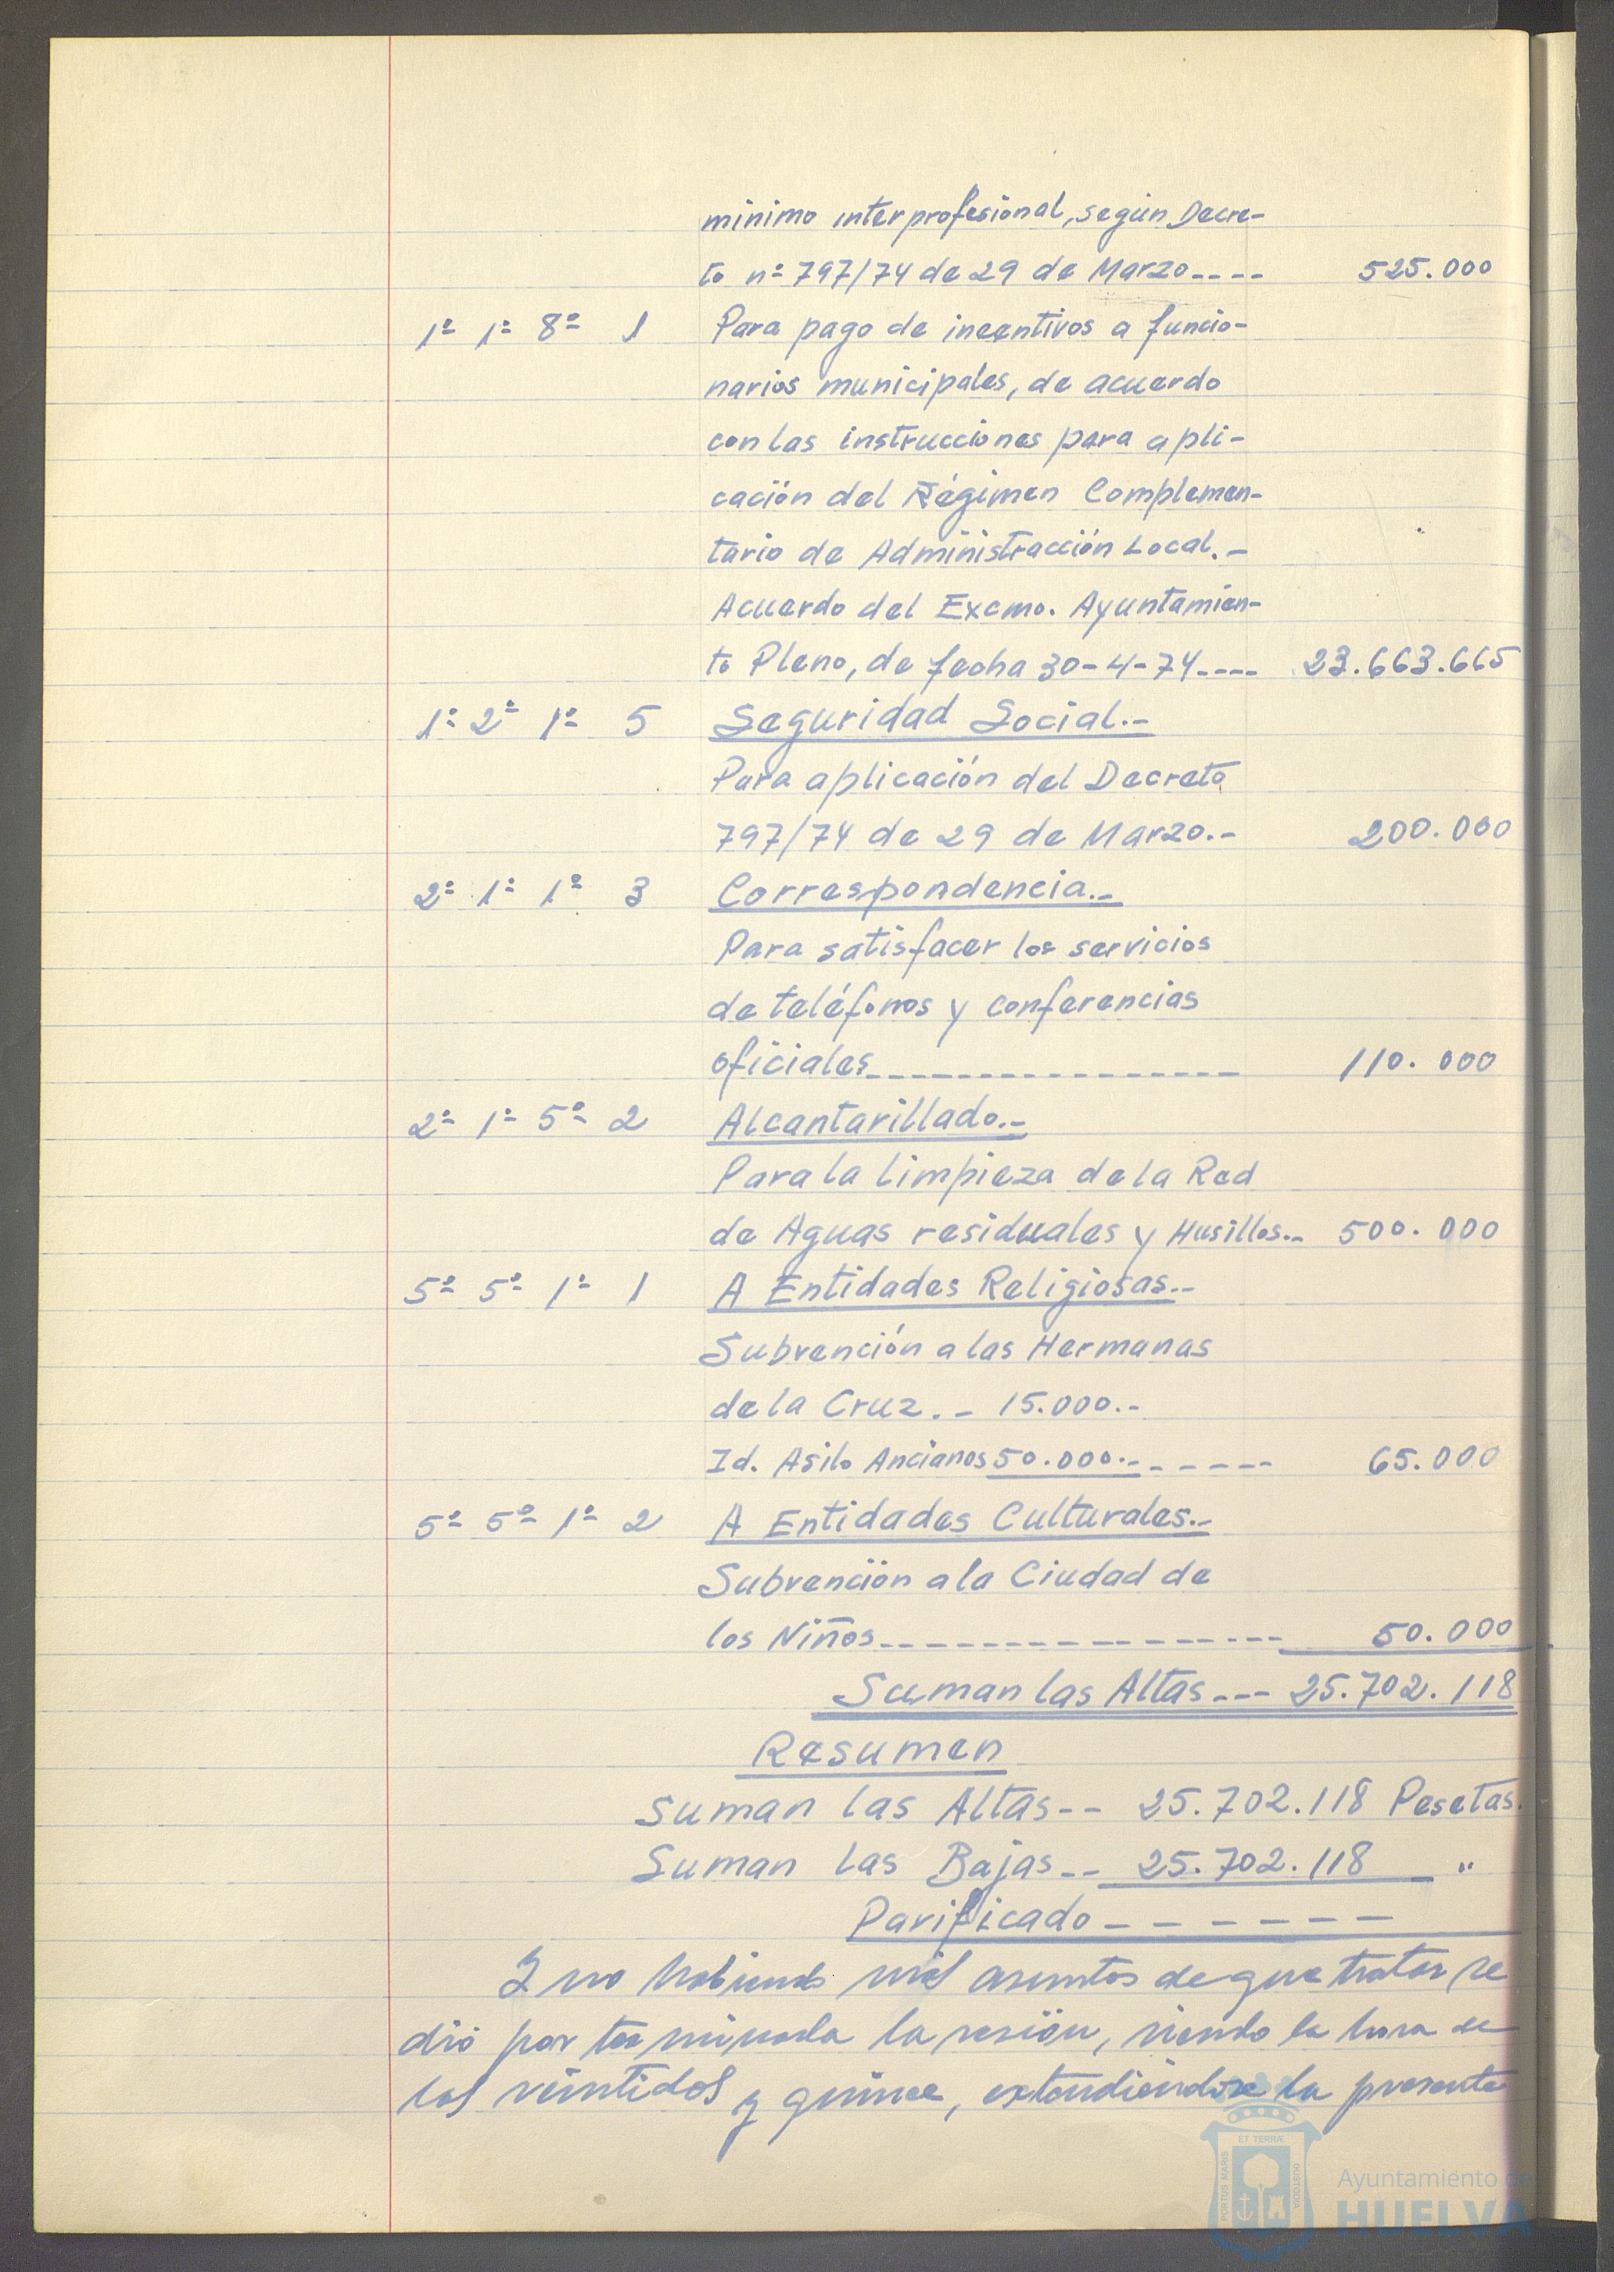 mínimo interprofesional, según Decre-
to nº 797/74 de 29 de Marzo---- 525.000
1º 1º 8º 1 Para pago de incentivos a funcio-
narios municipales, de acuerdo
con las instrucciones para apli-
cación del Régimen Complemen-
tario de Administracción Local.-
Acuerdo del Excmo. Ayuntamien-
to Pleno, de fecha 30-4-74---- 23.663.665
1º 2º 1º 5 Seguridad Social.-
Para aplicación del Decreto
797/74 de 29 de Marzo.- 200.000
2º 1º 1º 3 Correspondencia.-
Para satisfacer los servicios
de teléfonos y conferencias
oficiales---------------- 110.000
2º 1º 5º 2 Alcantarillado.-
Para la limpieza de la Red
de Aguas residuales y Husillos.- 500.000
5º 5º 1º 1 A Entidades Religiosas.-
Subvención a las Hermanas
de la Cruz.- 15.000.-
Id. Asilo Ancianos 50.000.------- 65.000
5º 5º 1º 2 A Entidades Culturales.-
Subvención a la Ciudad de
los Niños----------------- 50.000
Suman las Altas--- 25.702.118
Resumen
Suman las Altas-- 25.702.118 Pesetas.
Suman las Bajas-- 25.702.118 "
Parificado-------
Y no habiendo más asuntos de que tratar se
dió por terminada la sesión, siendo la hora de
las veintidos y quince, extendiéndose la presente
PORTUS MARIS
ET TERRÆ
CUSTODIA
Ayuntamiento de
HUELVA